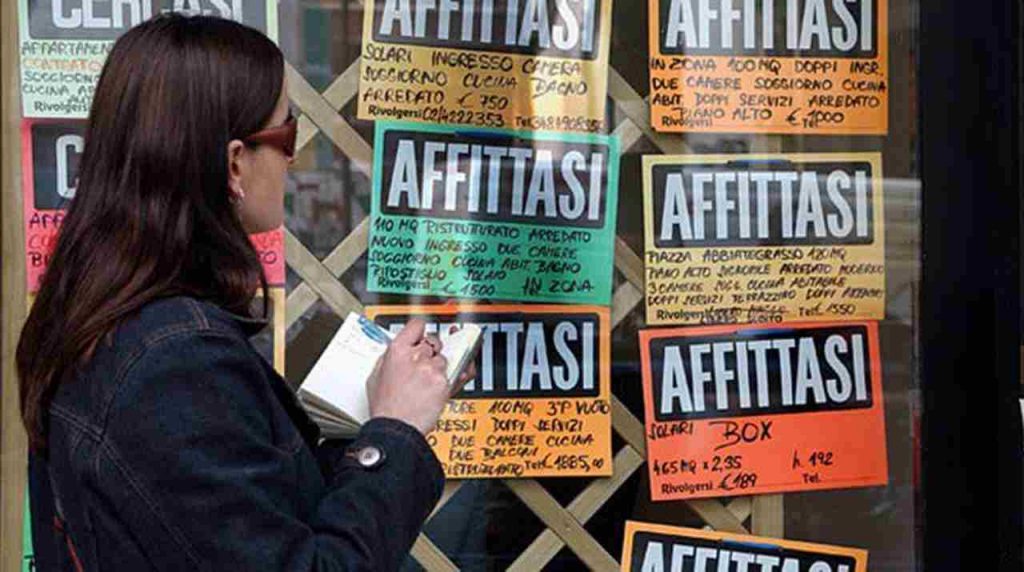 CERCASI
APPARTAMEN
CONTRATTO
SOGGIORNO
CUCINA
Rivolgersi
C
AFF
AFFITTASI
SOLARI INGRESSO CAMERA
SOGGIORNO CUCINA BAGNO
ARREDATO € 750
Rivolgersi 02/4222353 Tel.
AFFITTASI
110 MQ RISTRUTTURATO ARREDATO
NUOVO INGRESSO DUE CAMERE
SOGGIORNO CUCINA ABIT. BAGNO
RIPOSTIGLIO SOLAIO
Rivolgersi € 1500 IN ZONA
ITTASI
TORE 100 MQ 3°P VUOTO
RESSI DOPPI SERVIZI
DUE CAMERE CUCINA
DUE BALCONI
RISTRUTTURATO Tel. €1885,00
AFFITTASI
IN ZONA 100 MQ DOPPI INGR.
DUE CAMERE SOGGIORNO CUCINA
ABIT. DOPPI SERVIZI ARREDATO
PIANO ALTO € 1000
Rivolgersi Tel.
AFFITTASI
PIAZZA ABBIATEGRASSO 120 MQ
PIANO ALTO ARREDATO MODERNO
3 CAMERE SOGG. CUCINA ABITABILE
DOPPI SERVIZI TERRAZZINO DOPPI
Rivolgersi Tel. 1550
AFFITTASI
SOLARI BOX
465 MQ x 2,35 h. 192
Rivolgersi €189 Tel.
AFFITTASI